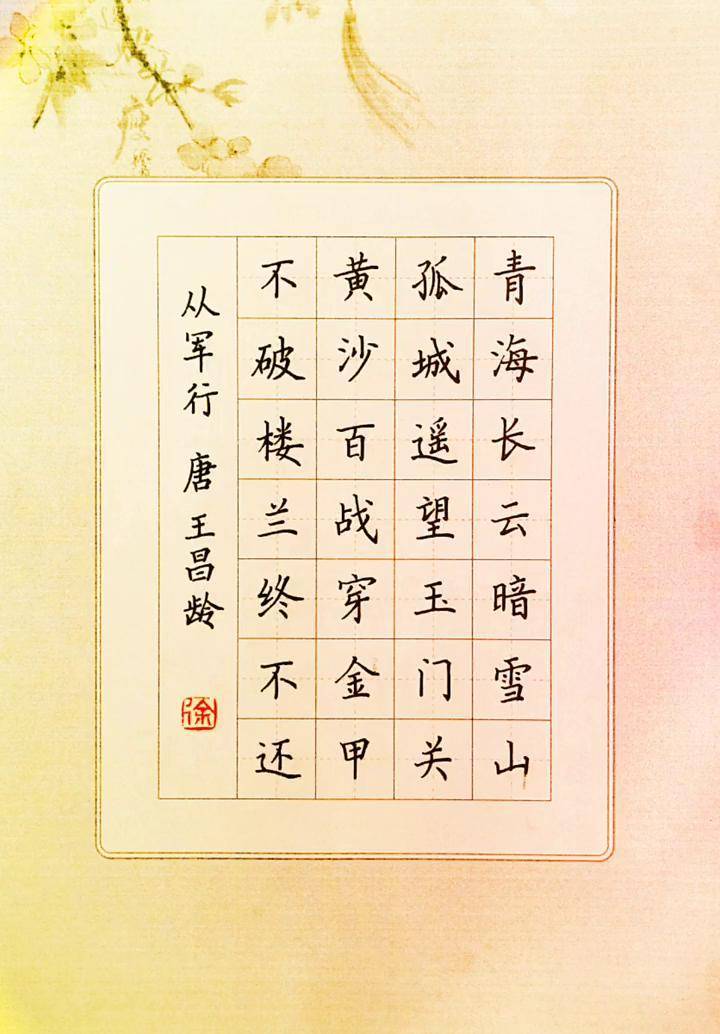 青海长云暗雪山
孤城遥望玉门关
黄沙百战穿金甲
不破楼兰终不还
从军行 唐 王昌龄